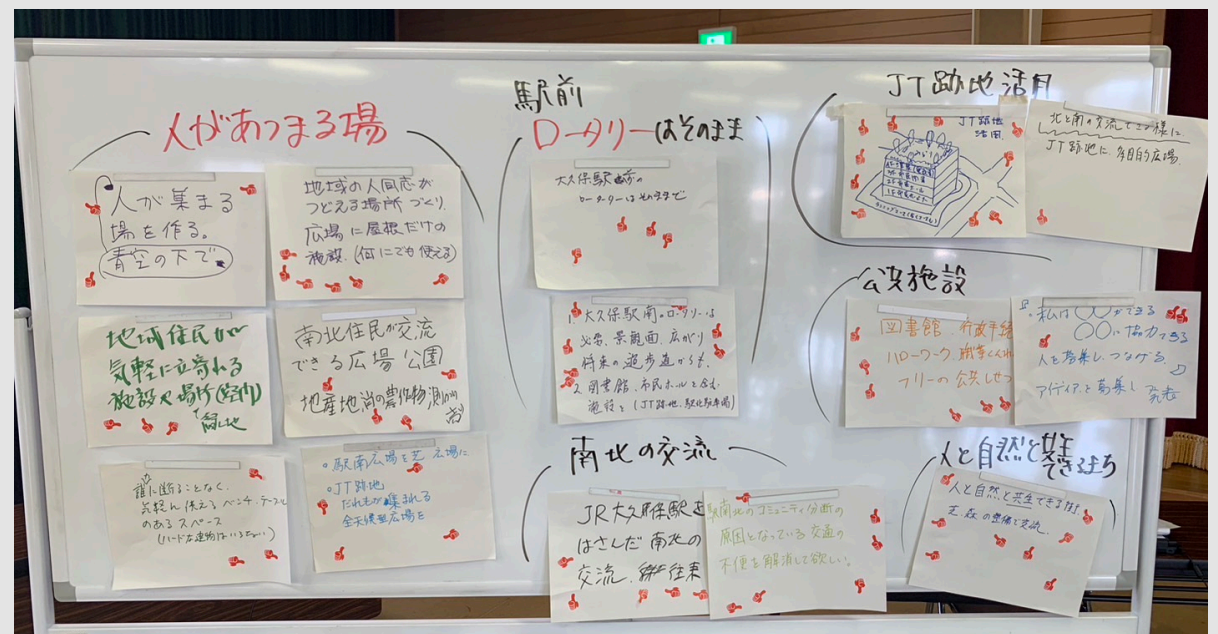 人があつまる場
人が集まる
場を作る。
青空の下で
地域の人同志が
つどえる場所づくり
広場に屋根だけの
施設.(何にでも使える)
地域住民が
気軽に立寄れる
施設や場所
南北住民が交流
できる広場 公園
地産地消の農作物
誰に断ることなく、
気軽に使えるベンチ、テーブル
のあるスペース
(ハードな建物はいらない)
○駅南広場を芝広場に
○JT跡地
だれもが集まれる
全天候型広場を
駅前
ロータリーはそのまま
大久保駅前の
ロータリーはそのままで
1. 大久保駅南のロータリーは
必要、景観面、広がり
将来の遊歩道からも、
2. 図書館、市民ホールを含む
施設を(JT跡地、駅北駐車場)
南北の交流
JR大久保駅を
はさんだ南北の
交流、往来
駅南北のコミュニティ分断の
原因となっている交通の
不便を解消して欲しい。
JT跡地活用
JT跡地
活用
北と南の交流できる様に
JT跡地に多目的広場
公共施設
図書館 行政手続
ハローワーク、職業
フリーの公共
私は〇〇ができる
〇〇に協力できる
人を募集し、つなげる
アイディアを募集し発表
人と自然と共生できるまち
人と自然と共生できる街
芝、森の整備と交流